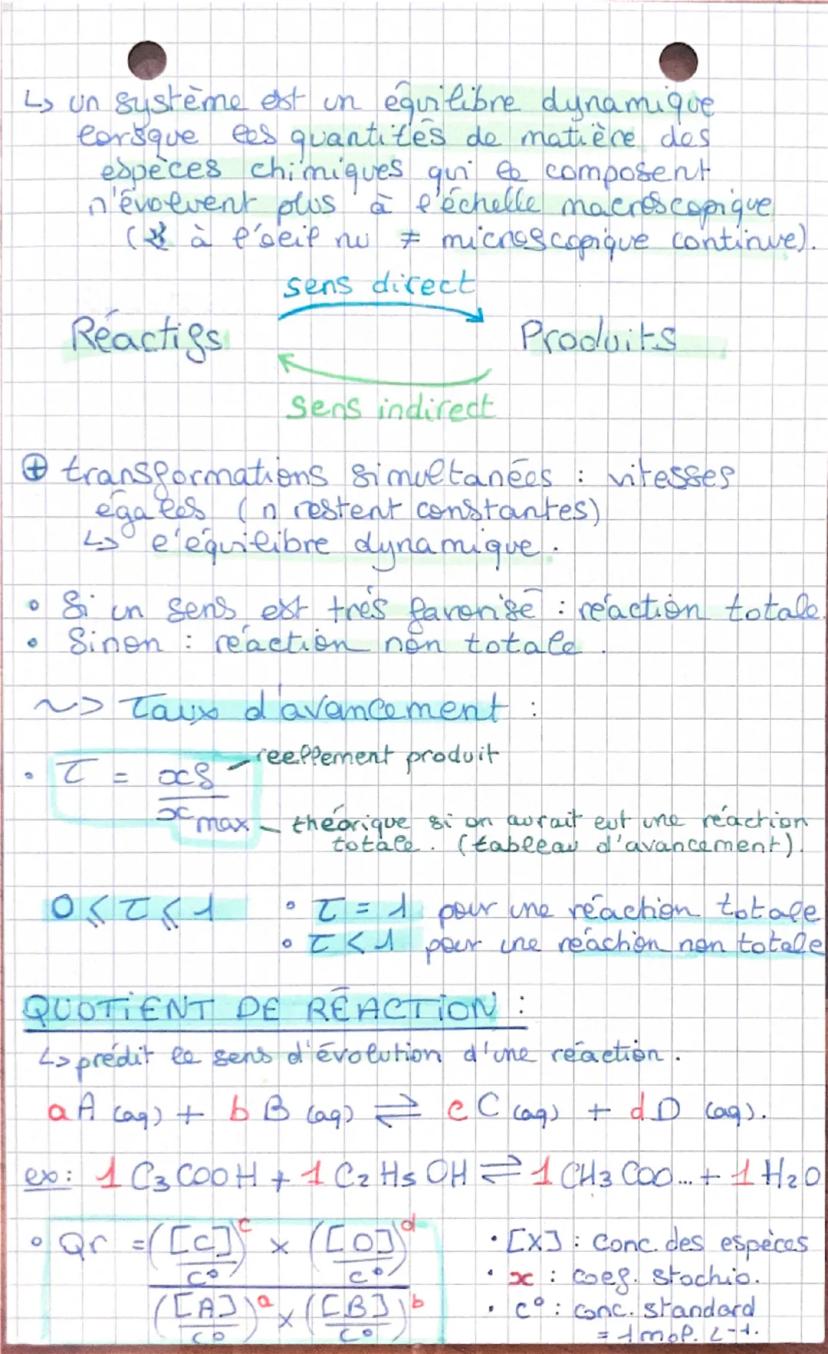 ↳ un système est un équilibre dynamique
lorsque les quantités de matière des
espèces chimiques qui le composent
n'évoluent plus à l'échelle macroscopique
( à l'oeil nu ≠ microscopique continue).
sens direct
Réactifs Produits
sens indirect
⊕ transformations simultanées : vitesses
égales (n restent constantes)
↳ l'équilibre dynamique.
• Si un sens est très favorisé : réaction totale.
• Sinon : réaction non totale.
~> Taux d'avancement :
• τ = xf / xmax
réellement produit
théorique si on aurait eut une réaction
totale. (tableau d'avancement).
0 ⩽ τ ⩽ 1 • τ = 1 pour une réaction totale
• τ < 1 pour une réaction non totale
QUOTIENT DE RÉACTION :
↳ prédit le sens d'évolution d'une réaction.
aA (aq) + bB (aq) ⇌ cC (aq) + dD (aq).
ex: 1 C3COOH + 1 C2H5OH ⇌ 1 CH3COO... + 1 H2O
• Qr = ([C]/c°)^c × ([D]/c°)^d / ([A]/c°)^a × ([B]/c°)^b
• [X] : conc. des espèces
• x : coef. stochio.
• c° : conc. standard
= 1 mol. L-1.